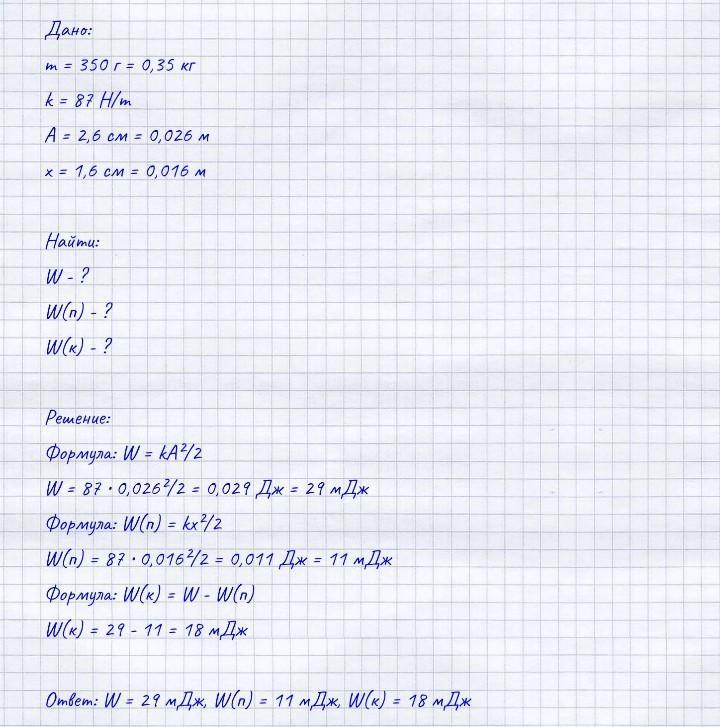 Дано:
m = 350 г = 0,35 кг
k = 87 Н/m
А = 2,6 см = 0,026 м
х = 1,6 см = 0,016 м
Найти:
W - ?
W(п) - ?
W(к) - ?
Решение:
Формула: W = kA²/2
W = 87 · 0,026²/2 = 0,029 Дж = 29 мДж
Формула: W(п) = kx²/2
W(п) = 87 · 0,016²/2 = 0,011 Дж = 11 мДж
Формула: W(к) = W - W(п)
W(к) = 29 - 11 = 18 мДж
Ответ: W = 29 мДж, W(п) = 11 мДж, W(к) = 18 мДж